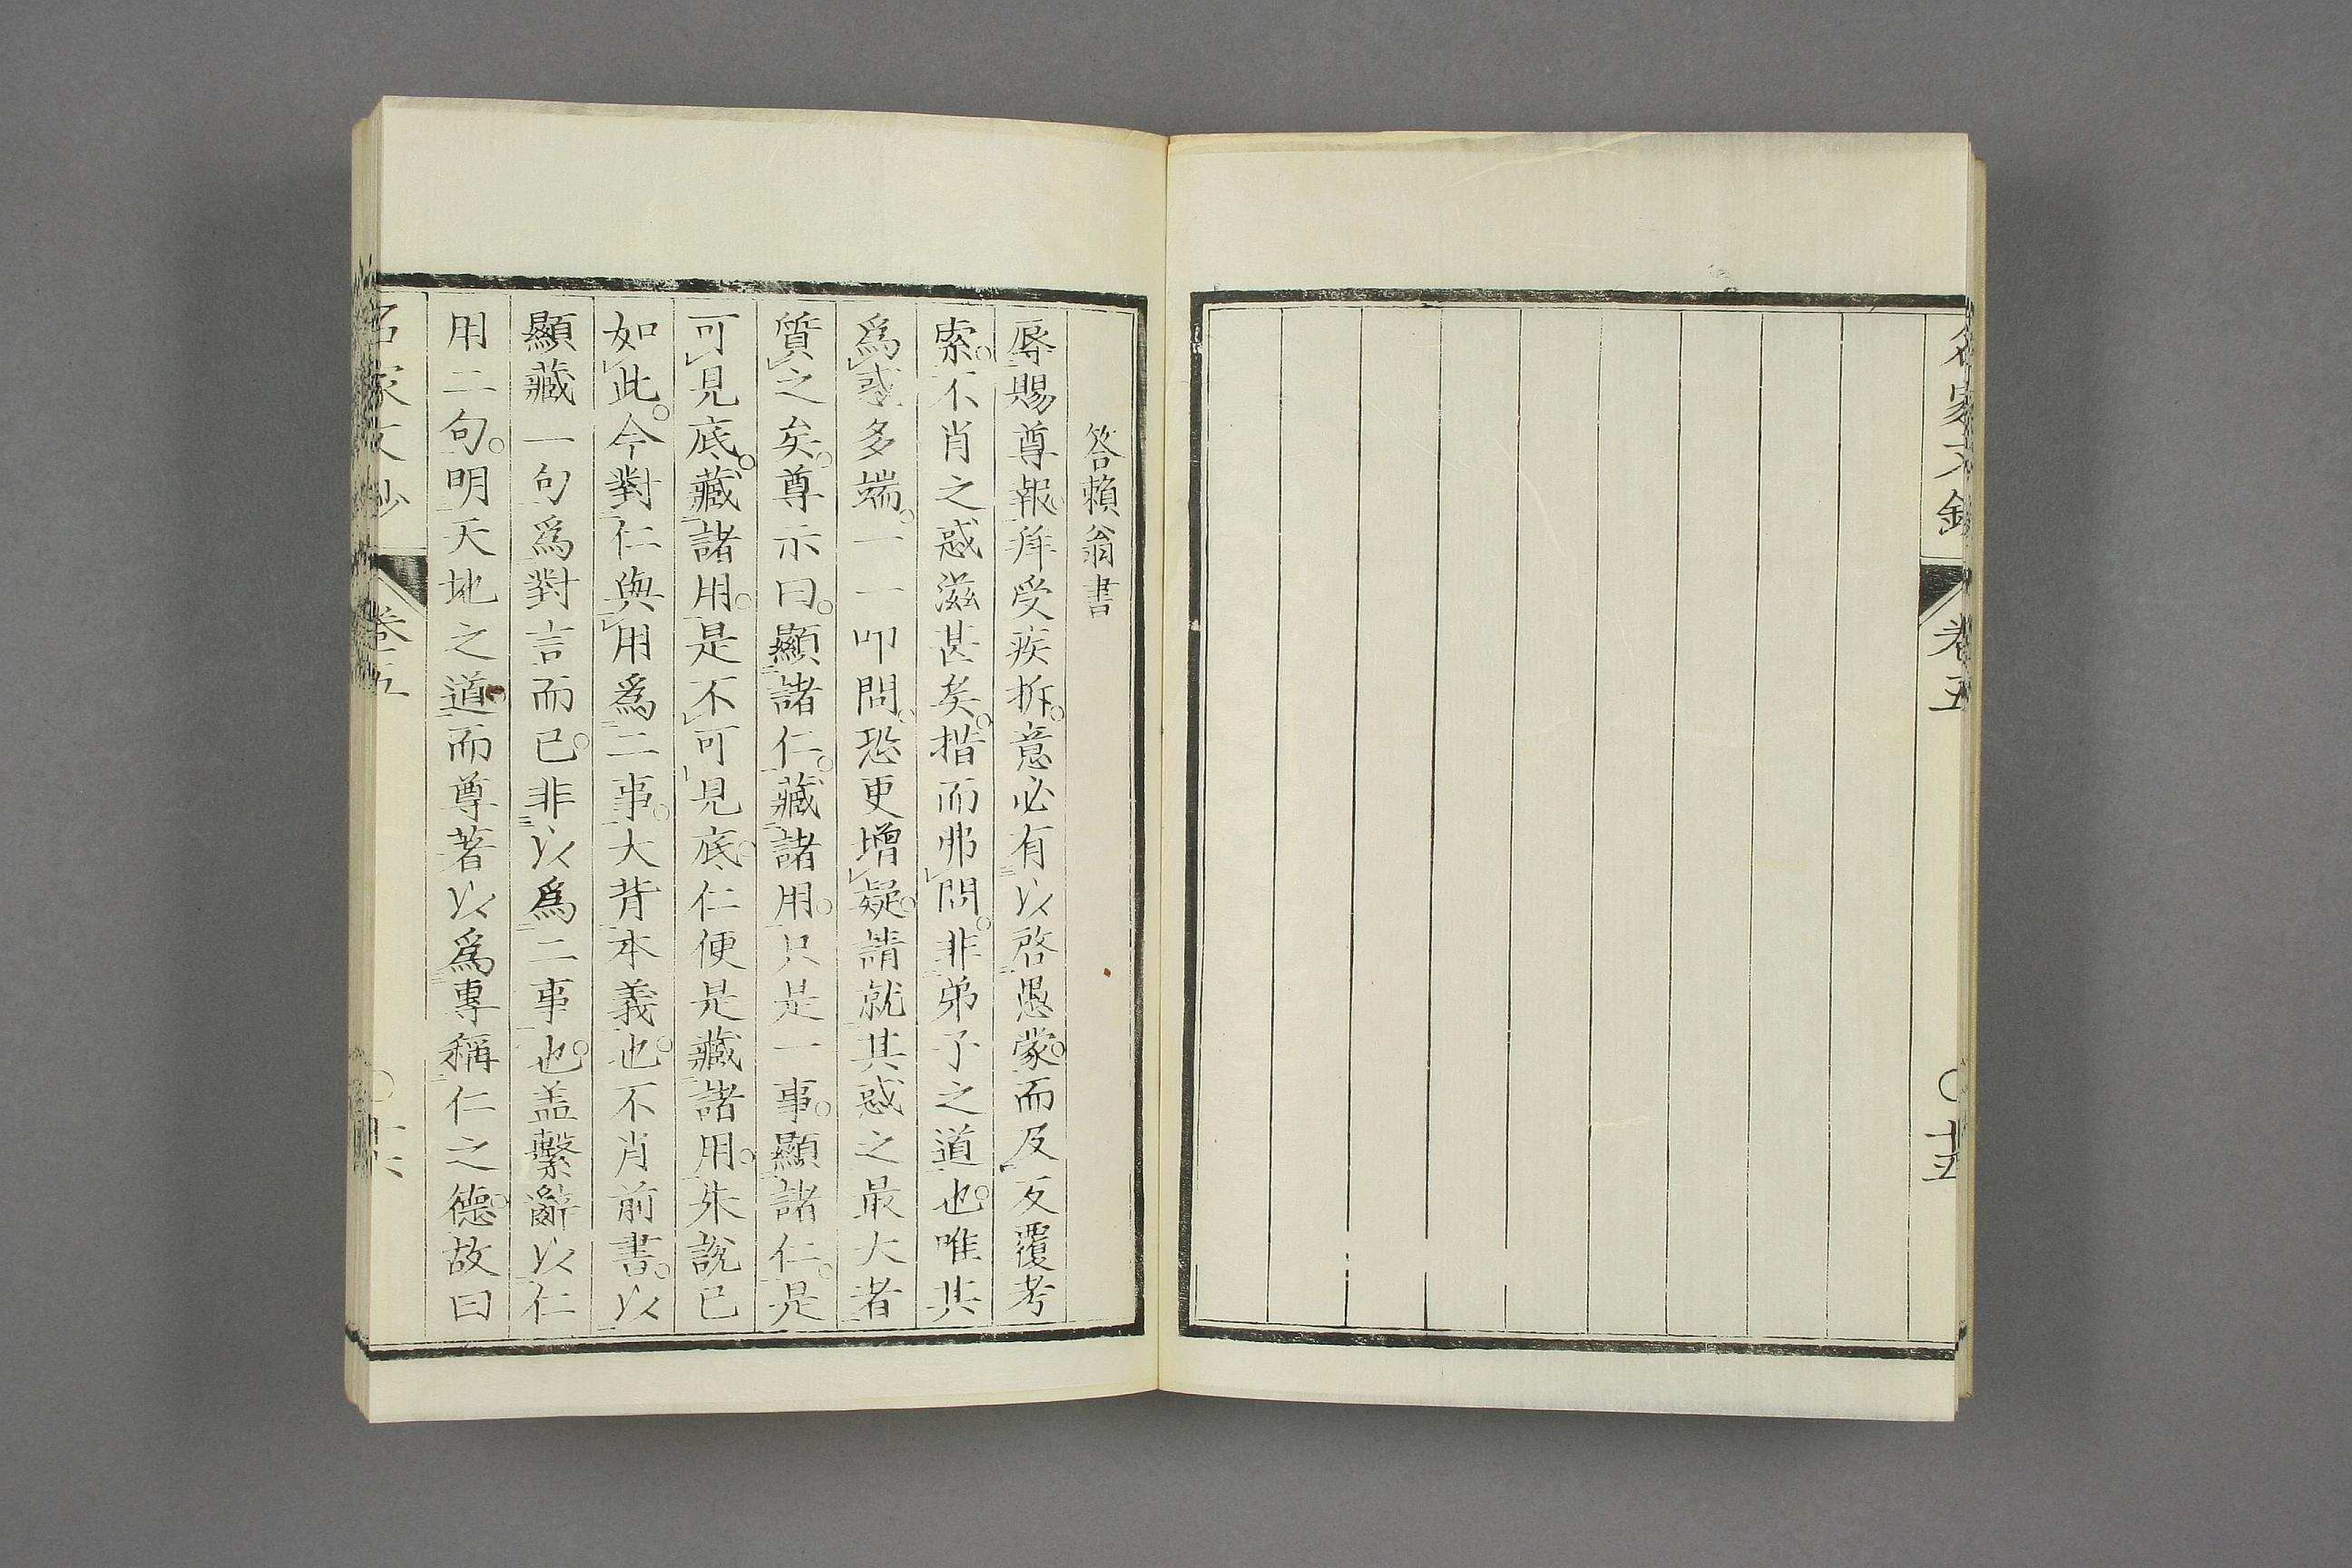 名家文鈔
卷五
〇十五
答賴翁書
辱賜尊報。痒受疾拆。意必有以啓愚蒙。而及反覆考
索。不肖之惑滋甚矣。揩而弗問。非弟子之道也。唯其
爲惑多端。一一叩問。恐更增疑。請就其惑之最大者
質之矣。尊示曰。顯諸仁。藏諸用。只是一事。顯諸仁。是
可見底。藏諸用。是不可見底。仁便是藏諸用。朱說已
如此。今對仁與用爲二事。大背本義也。不肖前書。以
顯藏一句爲對言而已。非以爲二事也。盖繫辭以仁
用二句。明天地之道。而尊著以爲專稱仁之德。故曰
名家文鈔
卷五
〇十六